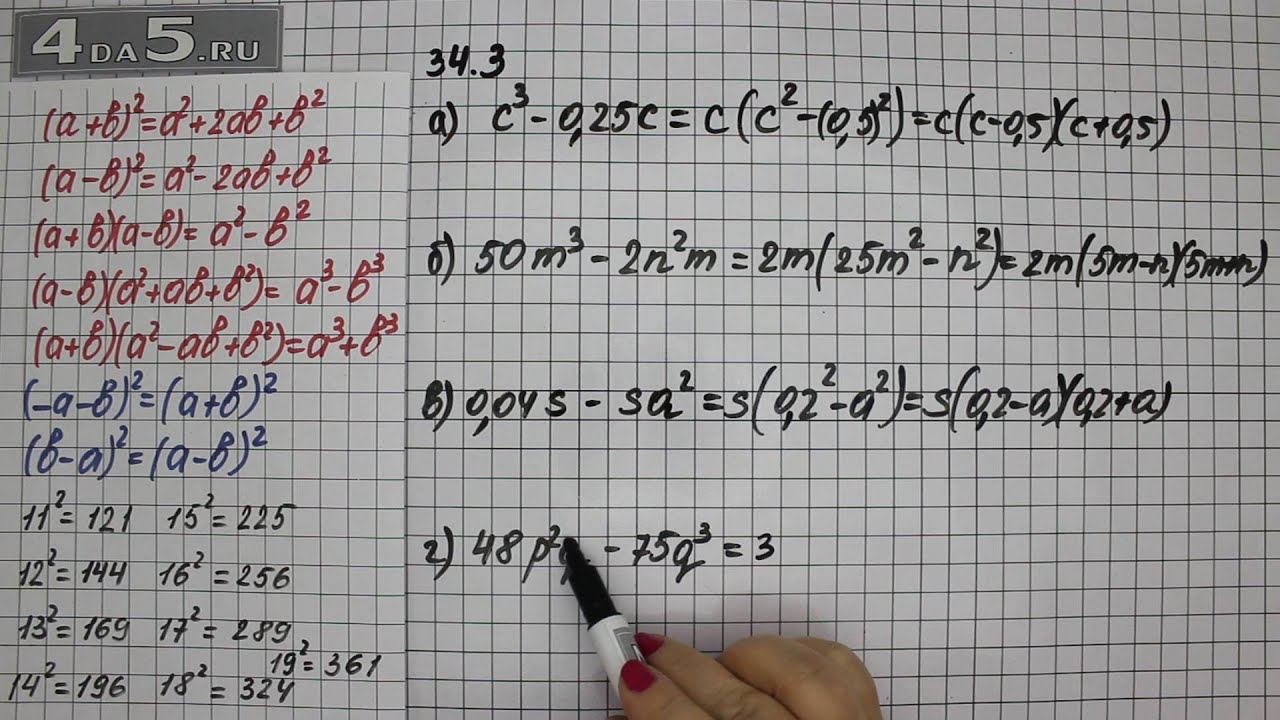 4DA5.RU
(a+b)²=a²+2ab+b²
(a-b)²=a²-2ab+b²
(a+b)(a-b)=a²-b²
(a-b)(a²+ab+b²)=a³-b³
(a+b)(a²-ab+b²)=a³+b³
(-a-b)²=(a+b)²
(b-a)²=(a-b)²
11²=121 15²=225
12²=144 16²=256
13²=169 17²=289
19²=361
14²=196 18²=324
34.3
а) c³-0,25c=c(c²-(0,5)²)=c(c-0,5)(c+0,5)
б) 50m³-2n²m=2m(25m²-n²)=2m(5m-n)(5m+n)
в) 0,04s-sa²=s(0,2²-a²)=s(0,2-a)(0,2+a)
г) 48p²q-75q³=3